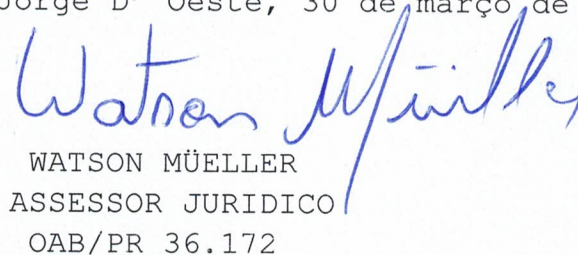 Jorge D' Oeste, 30 de março de
Watson Müeller
WATSON MÜELLER
ASSESSOR JURIDICO
OAB/PR 36.172